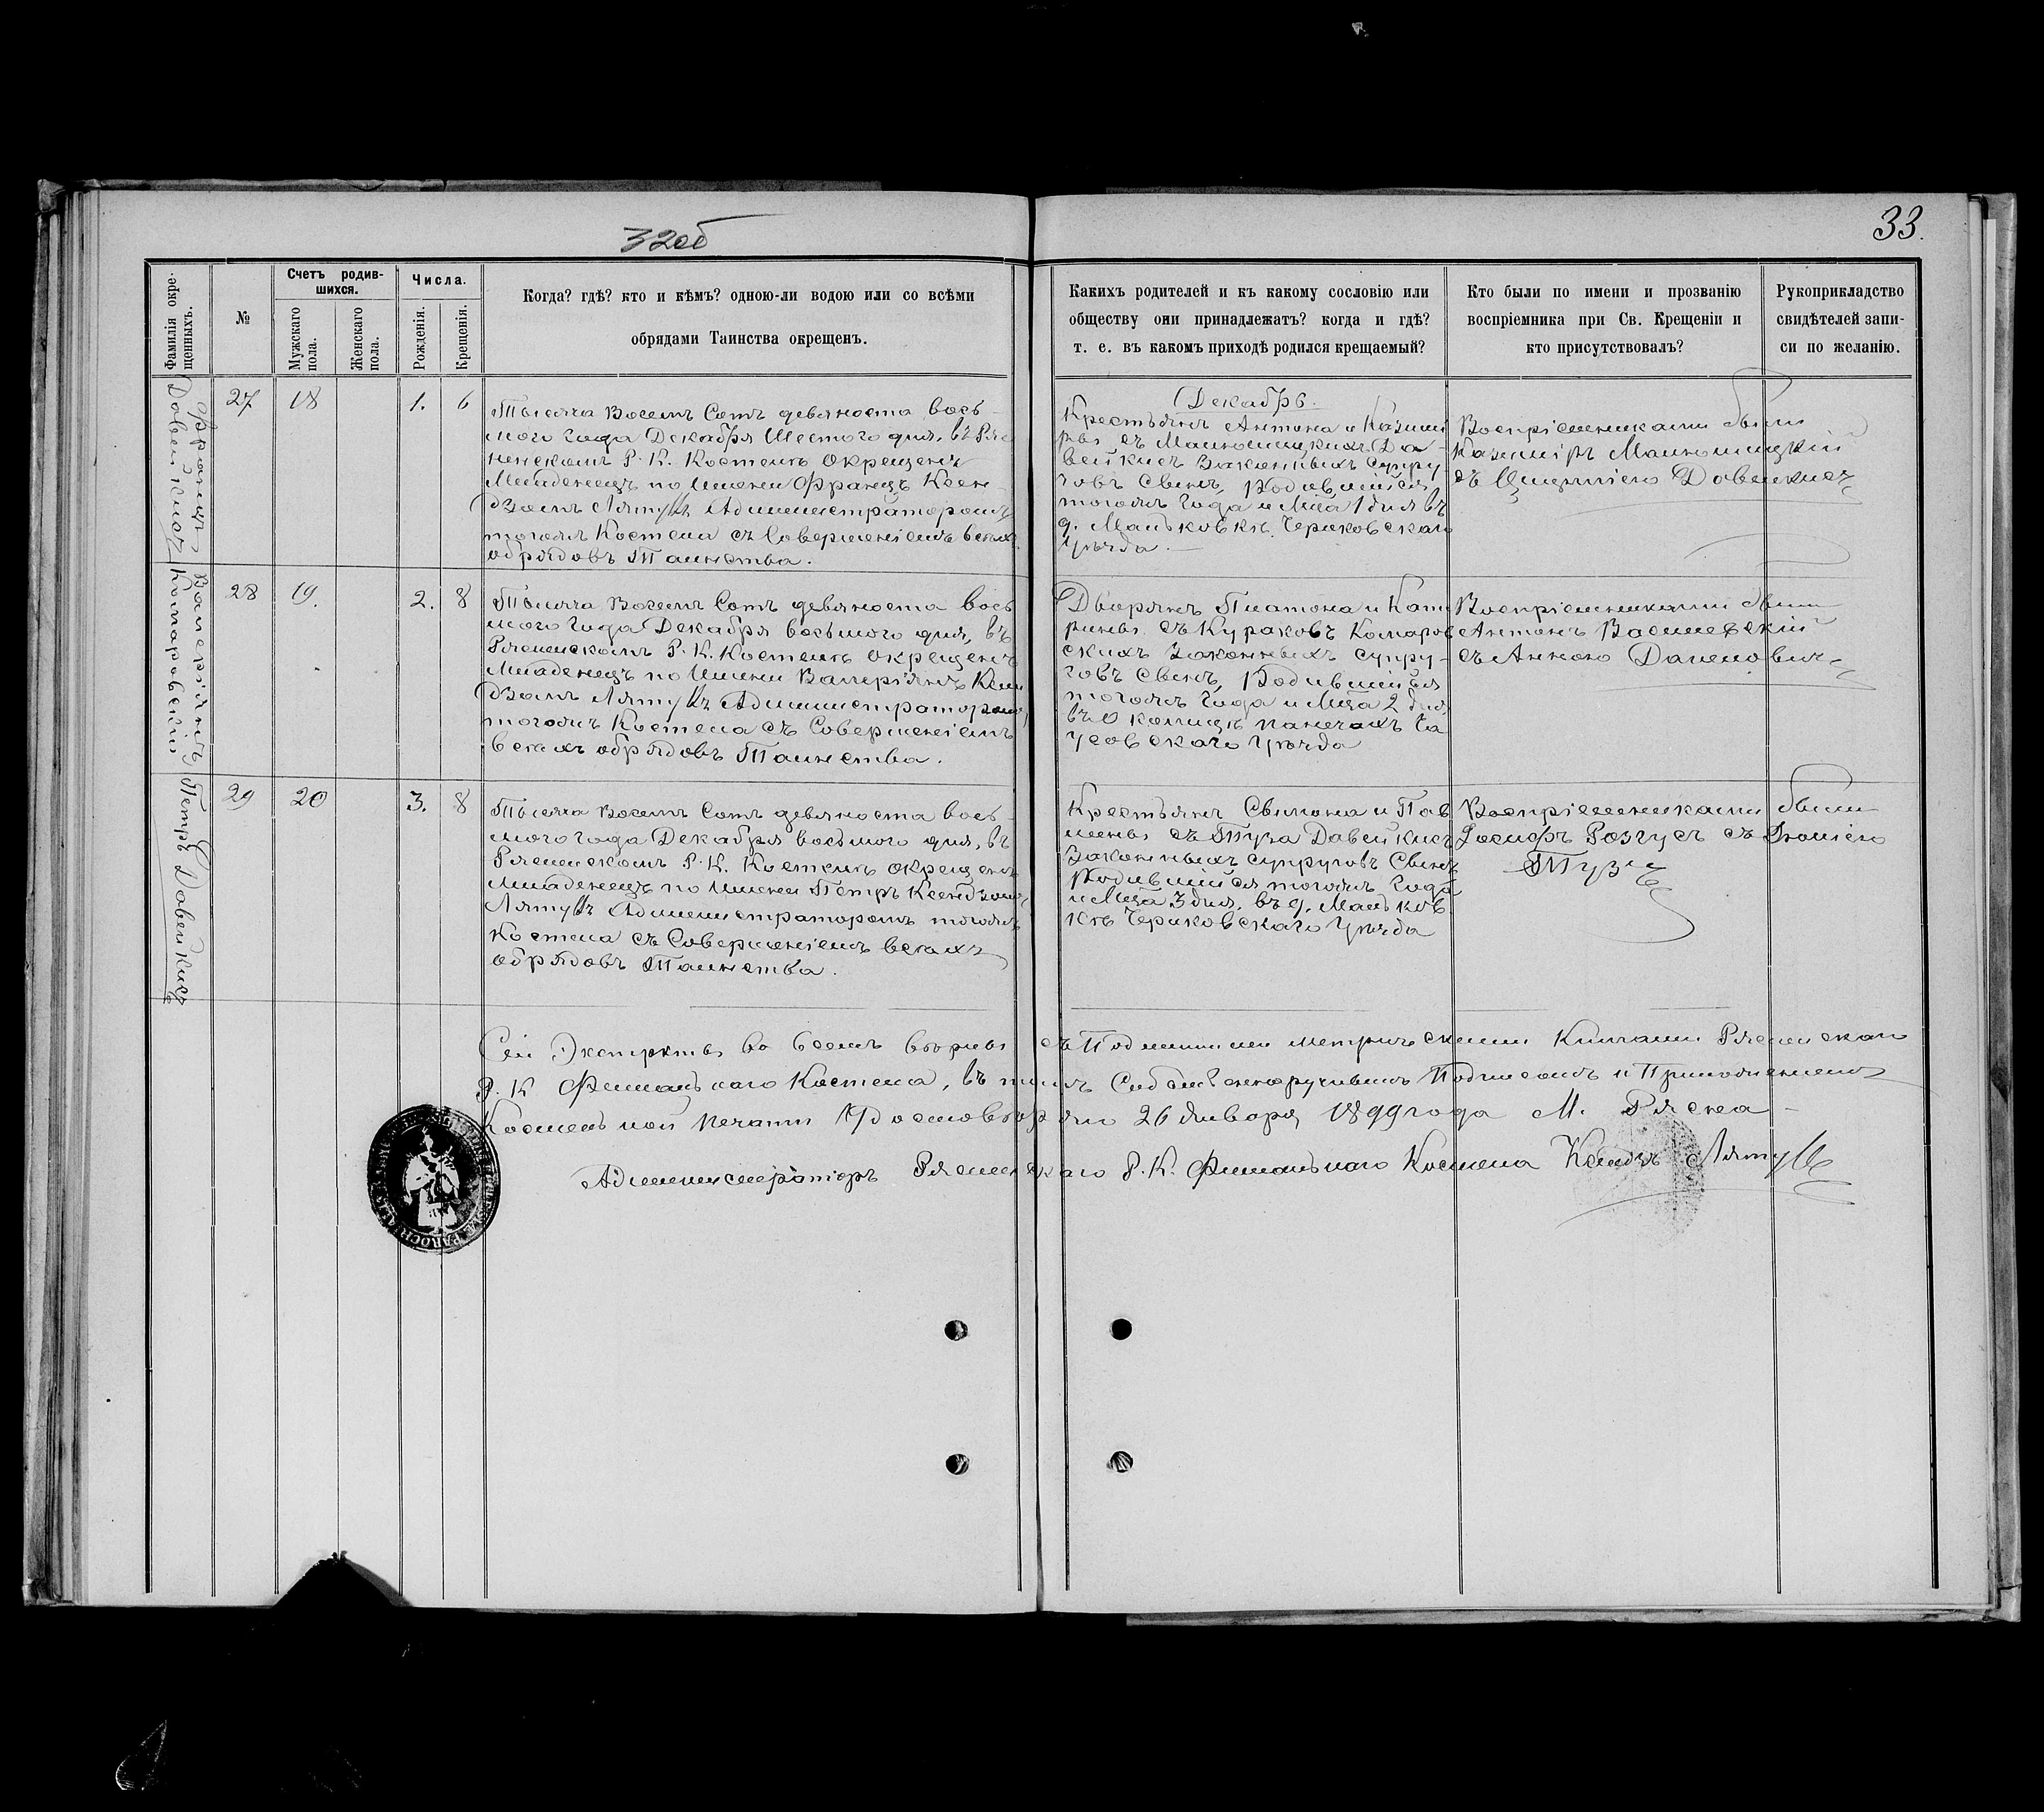 32об
33.
Фамилія окрещенныхъ.
№
Счетъ родившихся.
Мужскаго пола.
Женскаго пола.
Числа.
Рожденія.
Крещенія.
Когда? гдѣ? кто и кѣмъ? одною-ли водою или со всѣми
обрядами Таинства окрещенъ.
Какихъ родителей и къ какому сословію или
обществу они принадлежатъ? когда и гдѣ?
т. е. въ какомъ приходѣ родился крещаемый?
Кто были по имени и прозванію
воспріемника при Св. Крещеніи и
кто присутствовалъ?
Рукоприкладство
свидѣтелей запи-
си по желанію.
Францъ
Довейкисъ
27
18
1.
6
Тысяча Восемъ Сотъ девяноста вось-
мого года Декабря Шестого дня, въ Ряс
ненскомъ Р. К. Костелѣ окрещенъ
Младенецъ по Имени Францъ Ксен-
дзомъ Администраторомъ
тогожъ Костела съ Совершеніемъ всѣхъ
обрядовъ Таинства.
Декабрь.
Крестьянъ Антона и Казими
ры съ Малиошицкихъ До-
вейкисъ Законныхъ Супру-
говъ Сынъ, Родившійся
тогожъ Года и Мѣца 1 дня въ
д. Маньковкѣ Чериковскаго
Уѣзда.
Воспріемниками были
Казиміръ
съ Довейкисъ
Валеріянъ
Комаровскій
28
19.
2.
8
Тысяча Восемъ Сотъ девяноста вось
мого Года Декабря восьмого дня, въ
Рясненскомъ Р. К. Костелѣ окрещенъ
Младенецъ по Имени Валеріянъ Ксен
дзомъ Администраторомъ
тогожъ Костела съ Совершеніемъ
всѣхъ обрядовъ Таинства.
Дворянъ Платона и Кате
рины съ Кураковъ Комаров
скихъ Законныхъ супру-
говъ Сынъ, Родившійся
тогожъ Года и Мѣца 2 дня
въ Околицѣ Ча
усовскаго Уѣзда
Воспріемниками были
Антонъ Василевскій
съ Анною
Петръ Довейкисъ
29
20
3.
8
Тысяча Восемъ Сотъ девяноста вось-
мого Года Декабря восьмого дня, въ
Рясненскомъ Р. К. Костелѣ окрещенъ
Младенецъ по Имени Петръ Ксендзомъ
Администраторомъ тогожъ
Костела съ Совершеніемъ всѣхъ
обрядовъ Таинства.
Крестьянъ Симона и Пав
лины съ Туза Довейкисъ
Законныхъ супруговъ Сынъ
Родившійся тогожъ Года
и Мѣца 3 дня. въ д. Маньков
кѣ Чериковскаго Уѣзда
Воспріемниками были
Іосифъ съ
Тузъ
Сей Экстрактъ во всемъ вѣрный съ Подлинными метрическими Книгами Рясненскаго
Р. К. Филіальнаго Костела, въ томъ Собственноручнымъ Подписомъ и Приложеніемъ
Костельной Печати Удостовѣряю 26 Января 1899 года М. Рясна
Администраторъ Рясненскаго Р. К. Филіальнаго Костела Ксендзъ